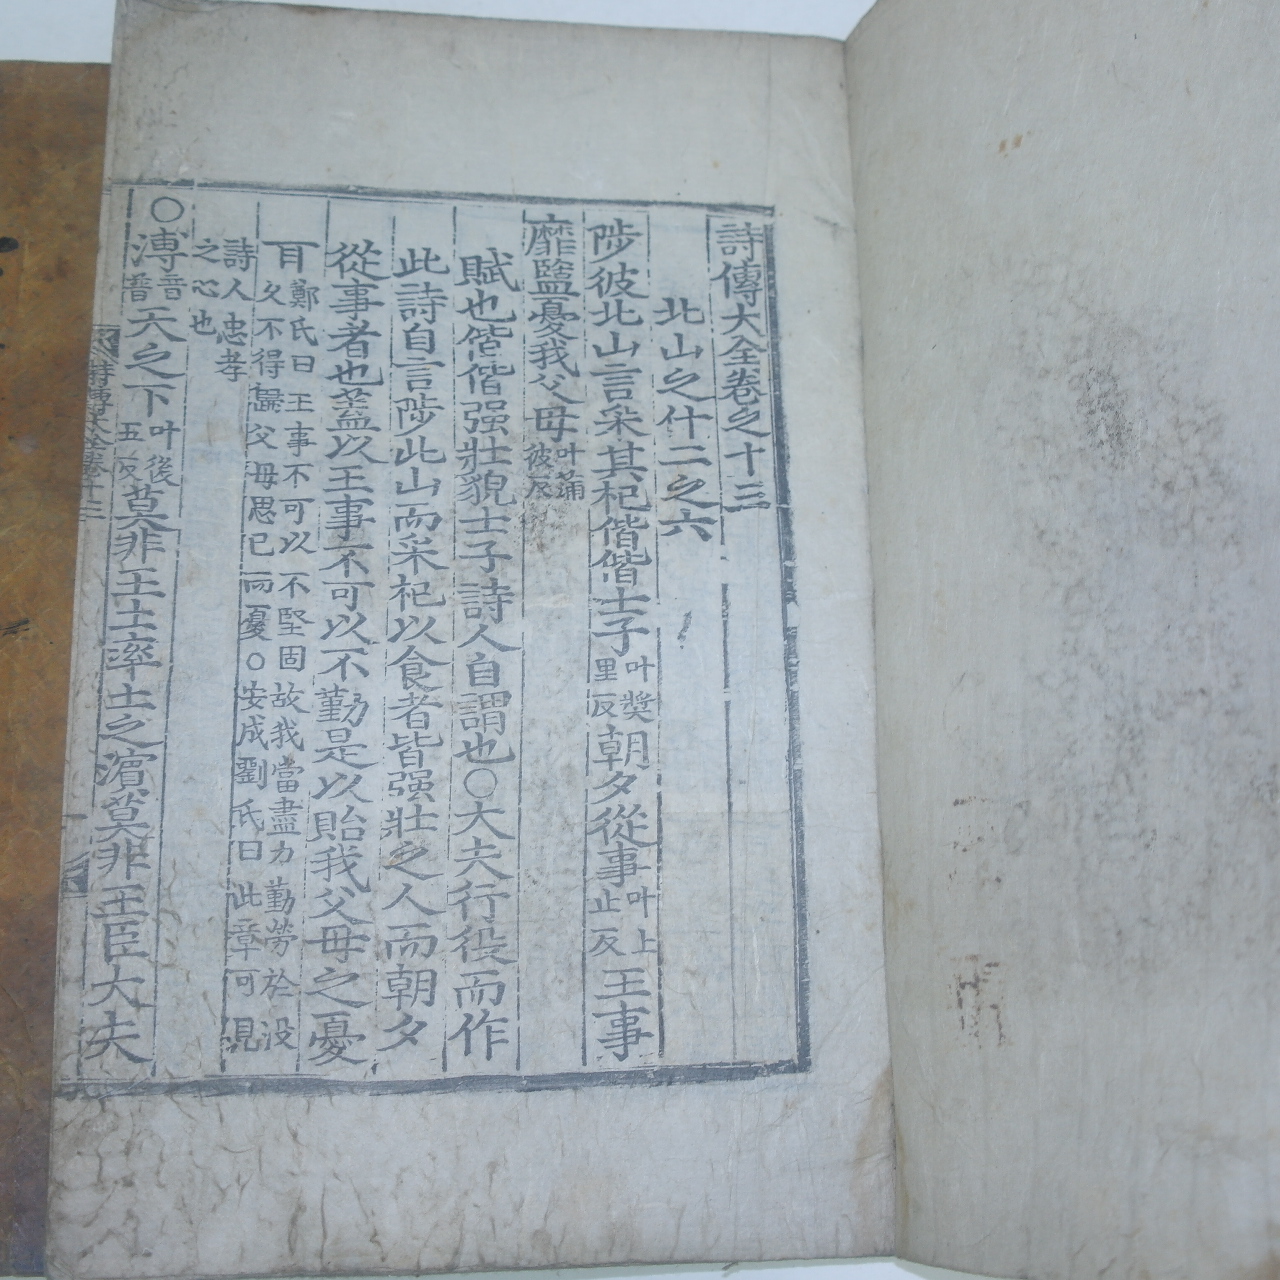 詩傳大全卷之十三
北山之什二之六
陟彼北山言采其杞偕偕士子叶奬里反朝夕從事叶上止反王事
靡盬憂我父母叶蒲彼反
賦也偕偕强壯貌士子詩人自謂也○大夫行役而作
此詩自言陟北山而采杞以食者皆强壯之人而朝夕
從事者也蓋以王事不可以不勤是以貽我父母之憂
耳鄭氏曰王事不可以不堅固故我當盡力勤勞於役久不得歸父母思己而憂○安成劉氏曰此章可見
詩人忠孝之心也
○溥音普天之下叶後五反莫非王土率土之濱莫非王臣大夫
詩傳大全卷十三